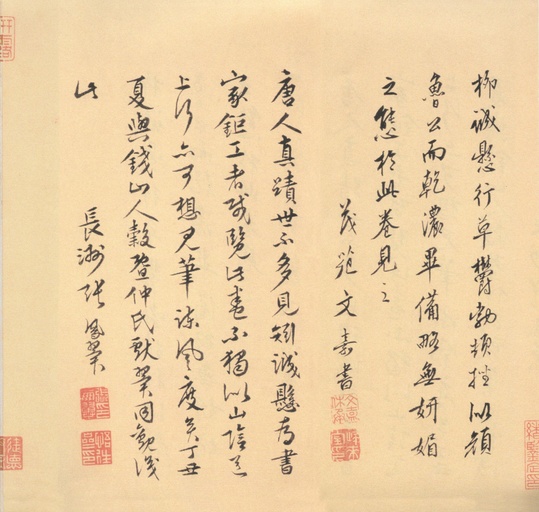 柳誠懸行草鬱勃頓挫似顏
魯公而乾濃畢備略無妍媚
之態於此卷見之
茂苑文嘉書
唐人真蹟世不多見矧誠懸為書
家鉅工者哉覽此卷不獨似山陰道
上行亦可想見筆諫風度矣丁丑
夏與錢山人穀暨仲氏獻翼同觀識
此
長洲張鳳翼